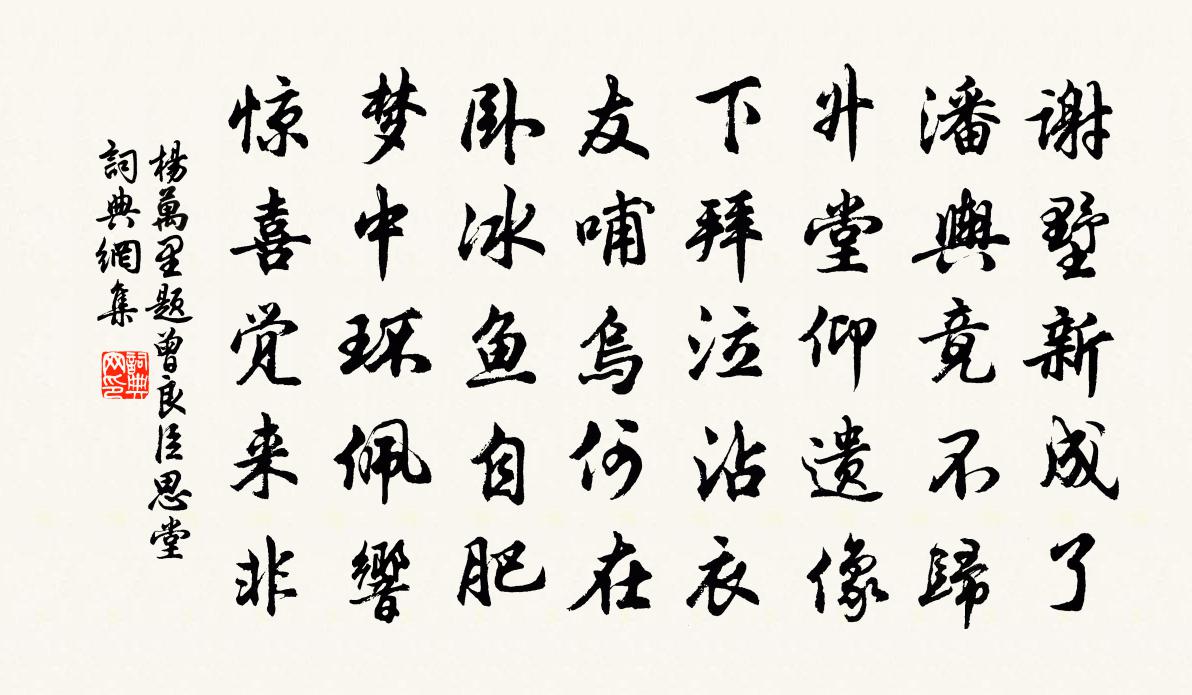 谢墅新成了
潘舆竟不歸
升堂仰遗像
下拜泣沾衣
友哺烏何在
卧冰鱼自肥
梦中环佩響
惊喜覚来非
楊萬里题曾良臣思堂
詞典網集
詞典网印